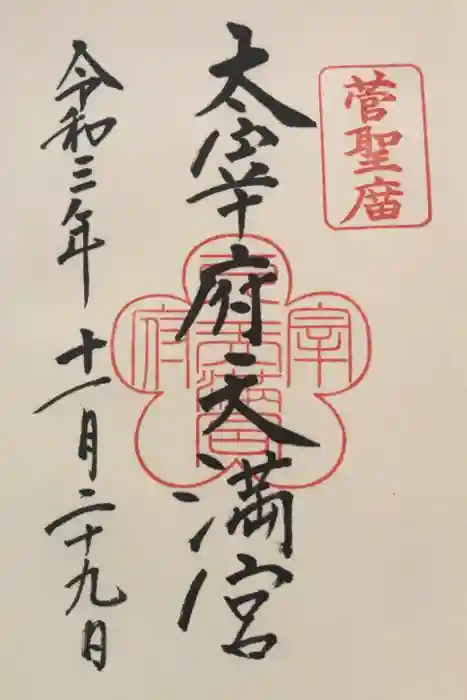 菅聖庿
太宰府天満宮
令和三年十一月二十九日